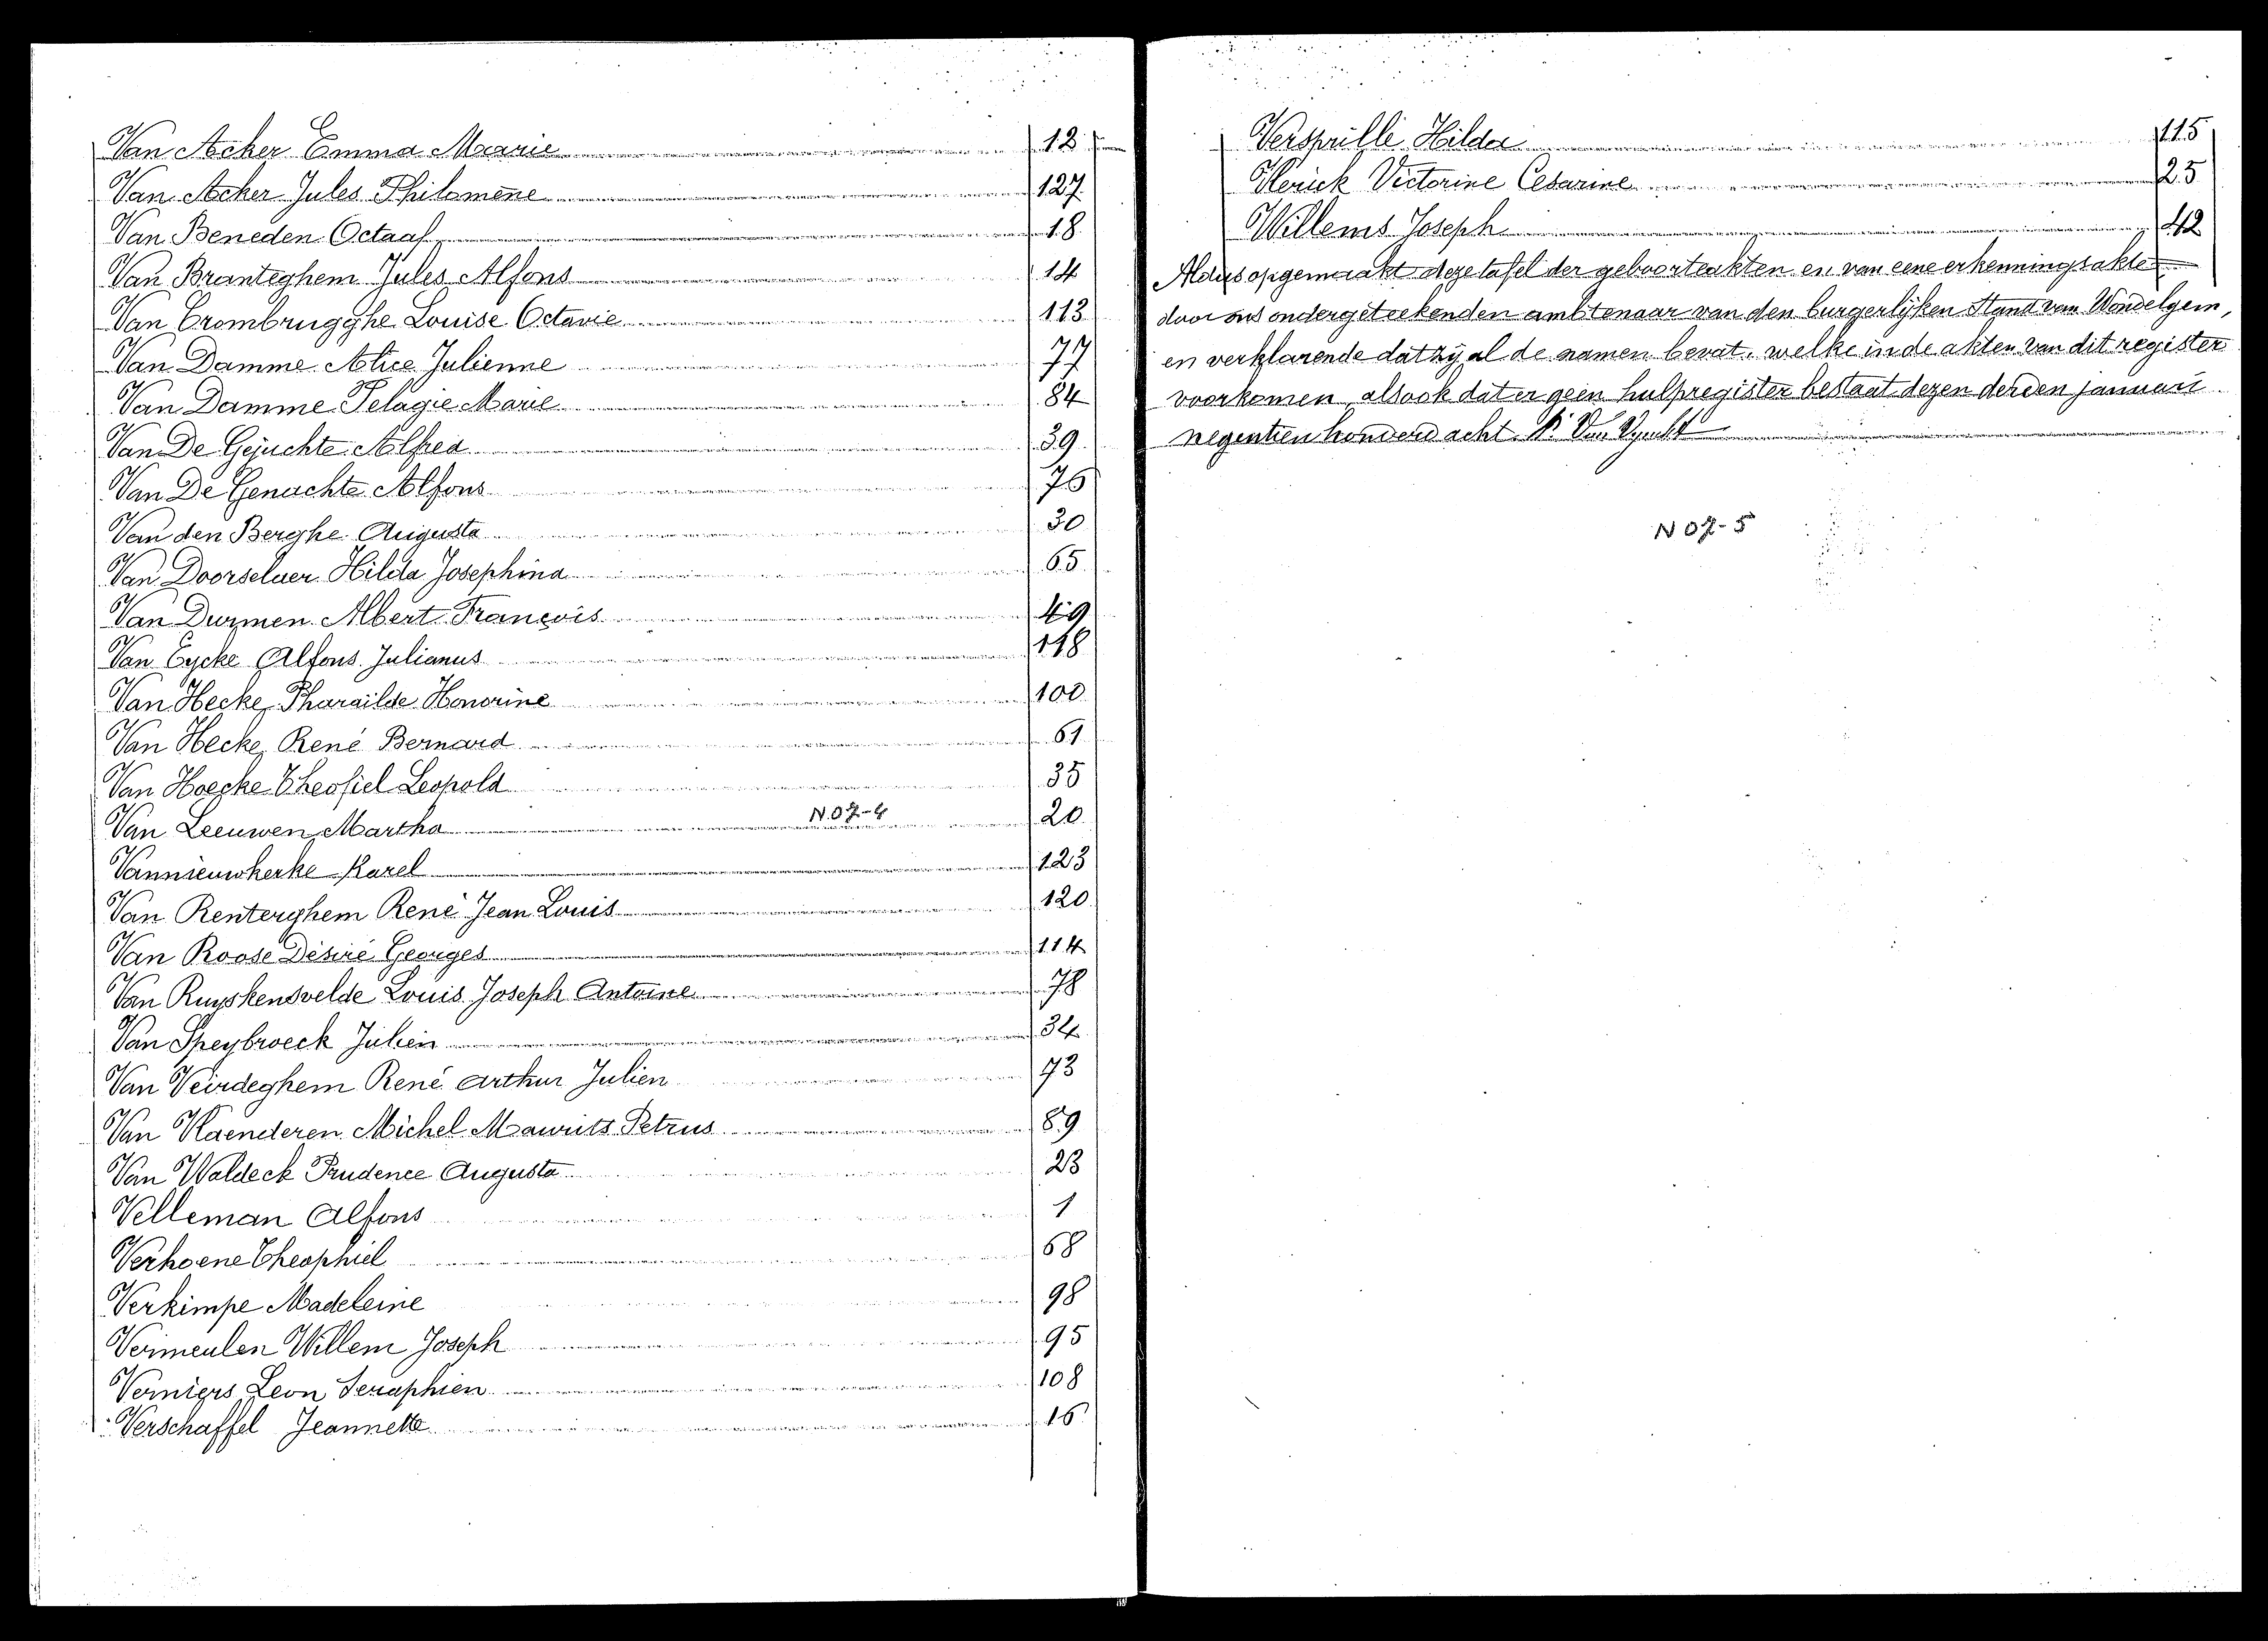 Van Acker Emma Marie 12
Van Acker Jules Philomène 127
Van Beneden Octaaf 18
Van Branteghem Jules Alfons 14
Van Crombrugghe Louise Octavie 113
Van Damme Alice Julienne 77
Van Damme Pelagie Marie 84
Van De Gejuchte Alfred 39
Van De Genachte Alfons 76
Van den Berghe Augusta 30
Van Doorselaer Hilda Josephina 65
Van Durmen Albert François 49
Van Eycke Alfons Julianus 118
Van Hecke Pharaïlde Honorine 100
Van Hecke René Bernard 61
Van Hoecke Theofiel Leopold 35
Van Leeuwen Martha N 07-4 20
Vannieuwkerke Karel 123
Van Renterghem René Jean Louis 120
Van Roose Désiré Georges 114
Van Ruyskensvelde Louis Joseph Antoine 78
Van Speybroeck Julien 34
Van Veirdeghem René Arthur Julien 73
Van Vlaenderen Michel Maurits Petrus 89
Van Waldeck Prudence Augusta 23
Velleman Alfons 1
Verhoene Theophiel 68
Verkimpe Madeleine 98
Vermeulen Willem Joseph 95
Verniers Leon Seraphien 108
Verschaffel Jeannette 16
Versprille Hilda 115
Vlerick Victorine Cesarine 25
Willems Joseph 42
Aldus opgemaakt deze tafel der geboorteakten en van eene erkenningsakte
door ons ondergeteekenden ambtenaar van den burgerlijken Stand van Wondelgem,
en verklarende dat zij al de namen bevat, welke in de akten van dit register
voorkomen, alsook dat er geen hulpregister bestaat dezen derden januari
negentien honderd acht.
N 07-5